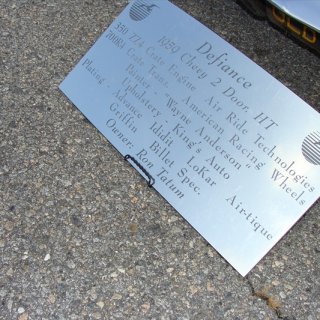 Defiance
1950 Chevy 2 Door HT
350 ZZ4 Crate Engine Air Ride Technologies
700R4 Trans. American Racing Wheels
Painter - "Wayne Anderson"
Upholstery - King's Auto
Plating - Advance Ididit LoKar Airtique
Griffin Billet Spec.
Owner, Ron Tatum